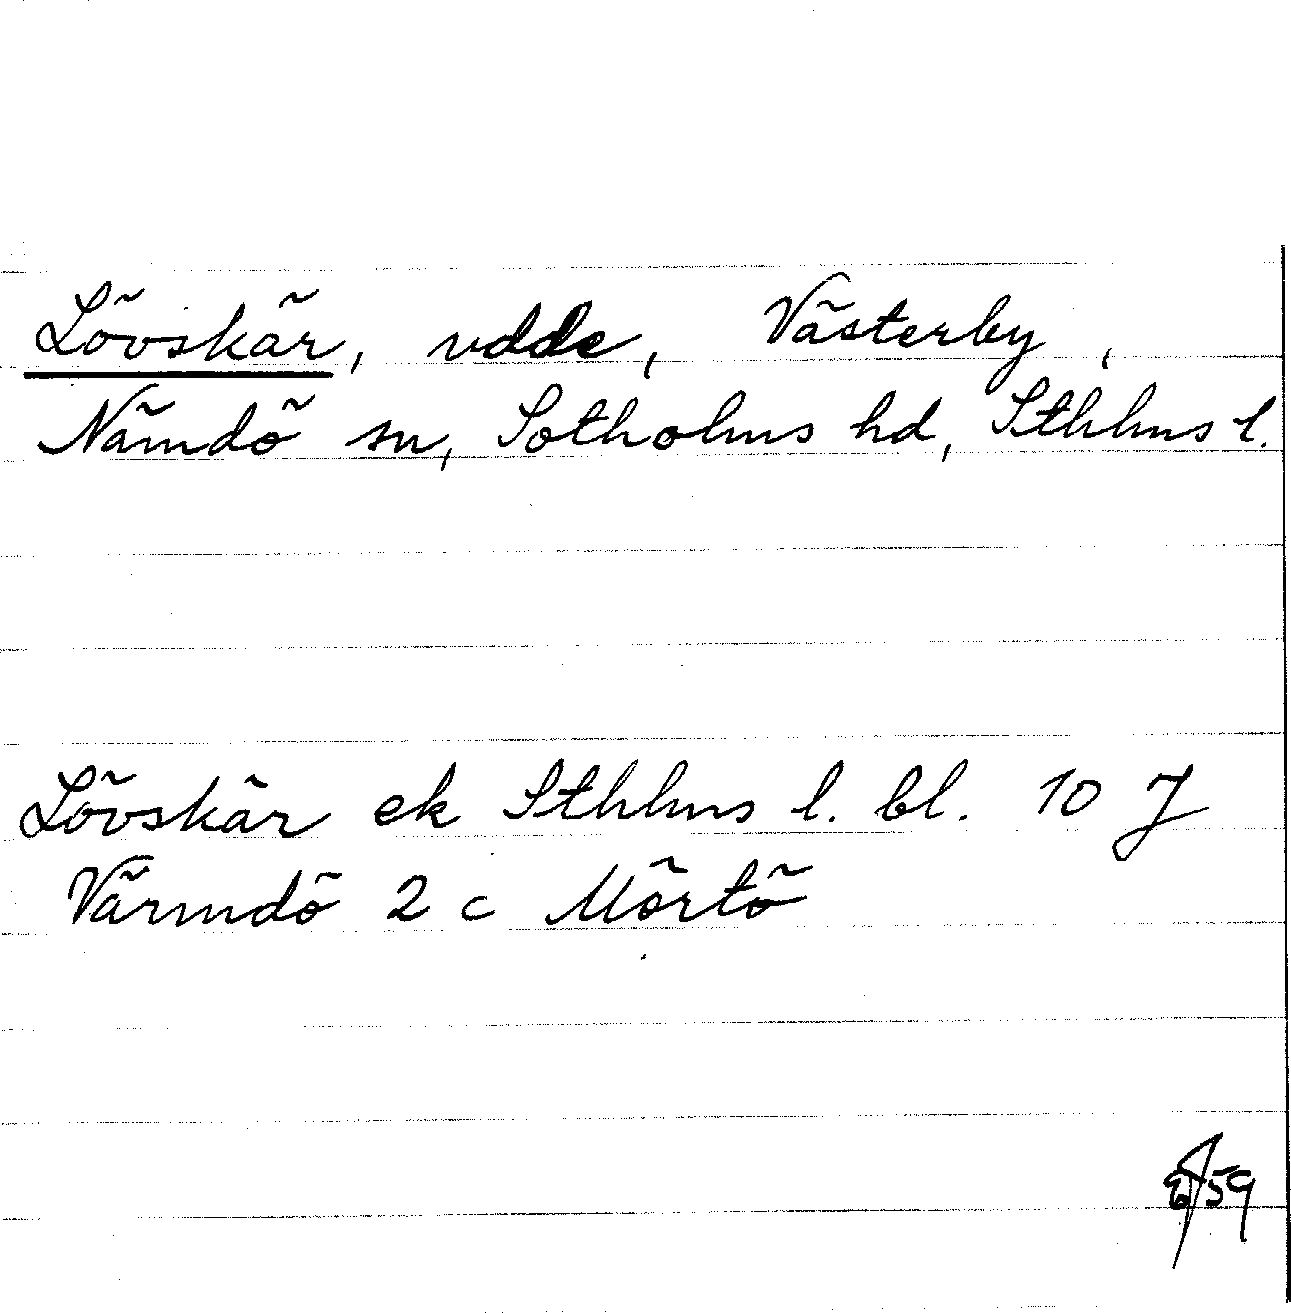 Lövskär, udde, Västerby,
Nämdö sn, Sotholms hd, Sthlms l.
Lövskär ek Sthlms l. bl. 10 J
Värmdö 2 c Mörtö
59